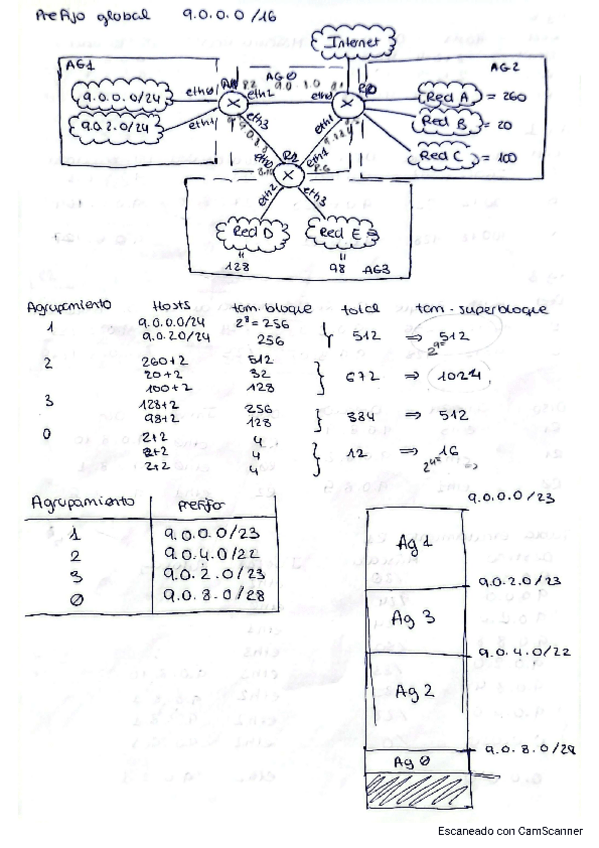 Prefijo global 9.0.0.0/16
Internet
AG1
AG0
AG2
9.0.0.0/24
eth0
R1
eth2
eth0
R0
Red A = 260
9.0.2.0/24
eth1
eth3
eth1
Red B = 20
Red C = 100
eth0
R2
eth1
eth2
eth3
Red D
Red E
128
98
AG3
Agrupamiento Hosts tam. bloque total tam. superbloque
1 9.0.0.0/24 2⁸ = 256
9.0.2.0/24 256 } 512 ⇒ 512
2⁹=
2 260+2 512
20+2 32 } 672 ⇒ 1024
100+2 128
3 128+2 256
98+2 128 } 384 ⇒ 512
0 2+2 4
2+2 4 } 12 ⇒ 16
2+2 4 2⁴= ⇒
Agrupamiento prefijo
1 9.0.0.0/23
2 9.0.4.0/22
3 9.0.2.0/23
0 9.0.8.0/28
9.0.0.0/23
Ag 1
9.0.2.0/23
Ag 3
9.0.4.0/22
Ag 2
9.0.8.0/28
Ag 0
Escaneado con CamScanner